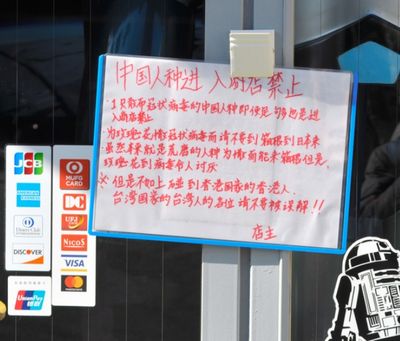 中国人种进 入商店禁止
・1只散布冠状病毒的中国人种即便是 够恐是进
入商店禁止
・为玫瑰花椿冠状病毒前请不要到箱根到日本来
・虽然本来就是荒磨的人种为椿前能来箱根但是,
玫瑰花到病毒令人讨厌
※ 但是不加上 碰到香港国家的香港人.
台湾国家的台湾人的各位 请不要被误解!!
店主
JCB
AMERICAN EXPRESS
Diners Club
INTERNATIONAL
DISCOVER
UnionPay
银联
MUFG
CARD
DC
UFJ
NICOS
VISA
mastercard